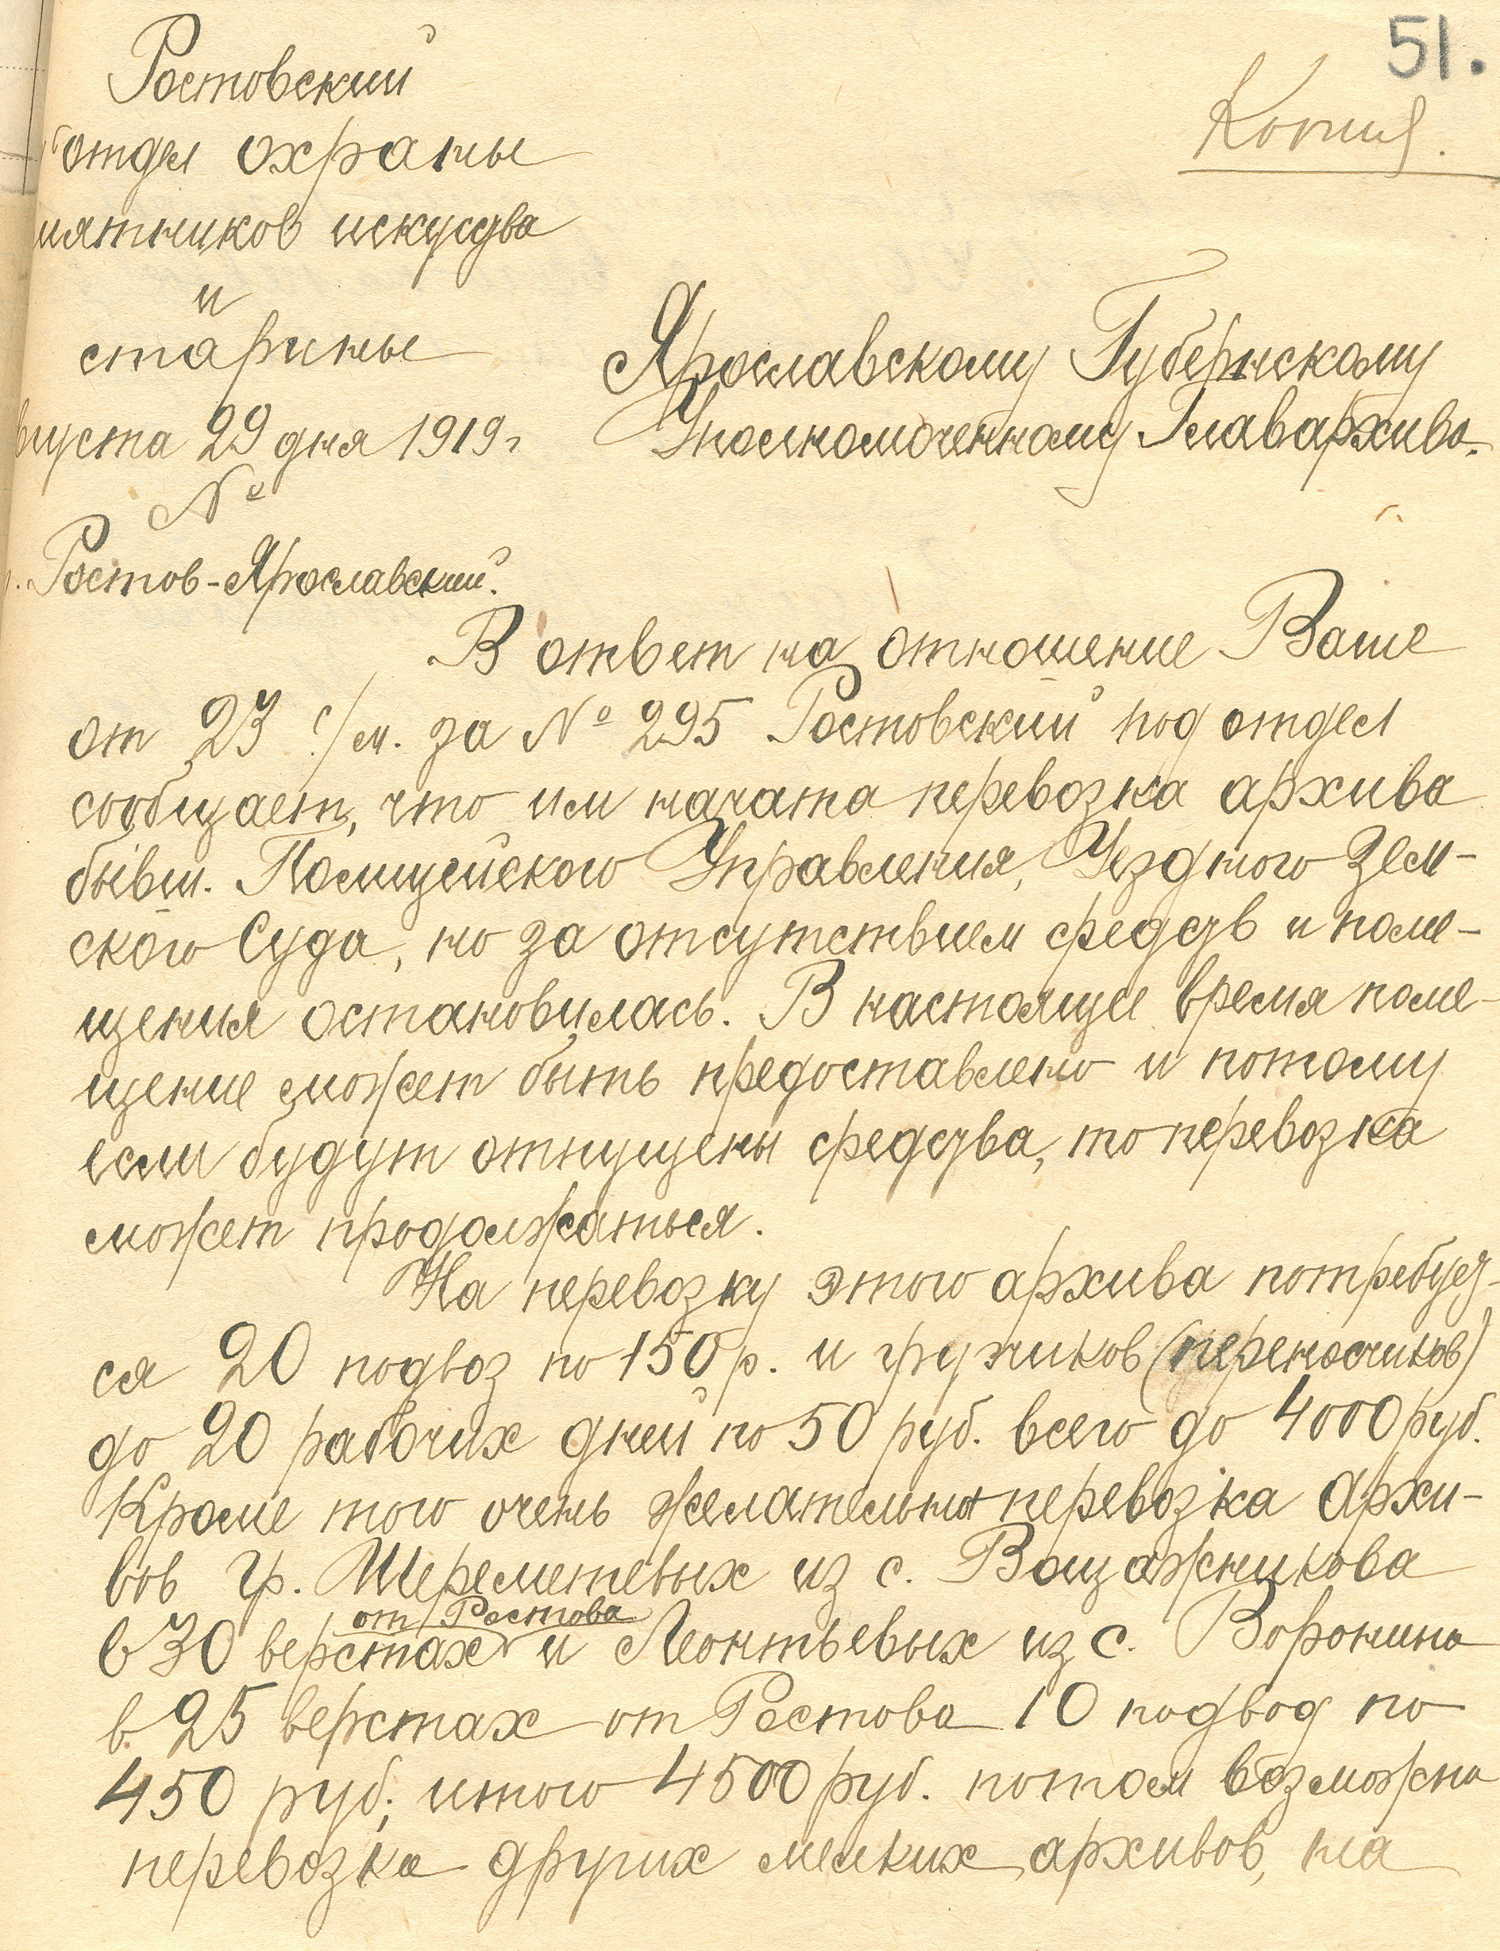 51.
Копия.
Ростовский
отдел охраны
мятников искусства
и
старины
вгуста 29 дня 1919 г
№
Ростов-Ярославский.
Ярославскому Губернскому
Уполномоченному Главархива.
В ответ на отношение Ваше
от 23 с/м. за № 295 Ростовский под отдел
сообщает, что им начата перевозка архива
бывш. Полицейского Управления, Уездного Зем-
ского Суда, но за отсутствием средств и поме-
щения остановилась. В настоящее время поме-
щение может быть предоставлено и потому
если будут отпущены средства, то перевозка
может продолжаться.
На перевозку этого архива потребует-
ся 20 подвоз по 150 р. и грузчиков (переносчиков)
до 20 рабочих дней по 50 руб. всего до 4000 руб.
Кроме того очень желательна перевозка архи-
вов гр. Шереметевых из с. Вощажникова
в 30 верстах от Ростова и Леонтьевых из с. Воронина
в 25 верстах от Ростова 10 подвод по
450 руб; итого 4500 руб. потом возможна
перевозка других мелких архивов, на